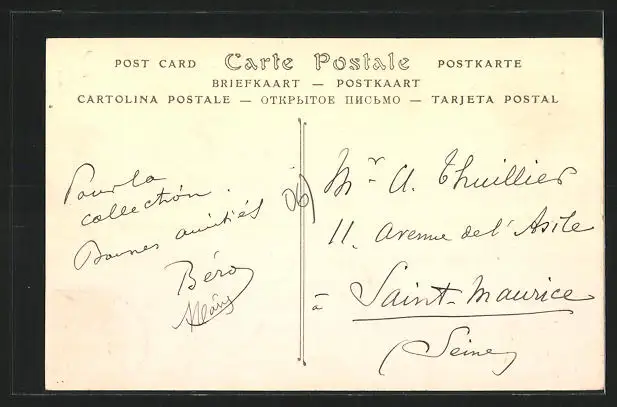 POST CARD Carte Postale POSTKARTE
BRIEFKAART — POSTKAART
CARTOLINA POSTALE — ОТКРЫТОЕ ПИСЬМО — TARJETA POSTAL
Pour la
collection.
Bonnes amitiés
Béro
06
Mr A. Thuillier
11. Avenue de l'Asile
à Saint-Maurice
(Seine)